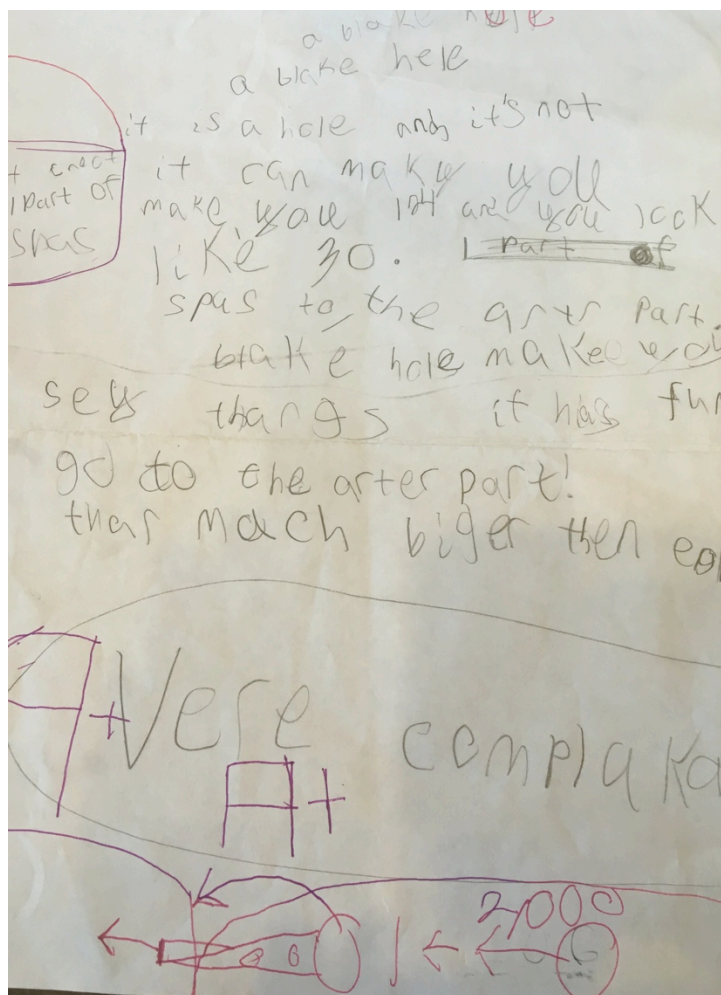 a blake hole
a blake hele
it is a hole and it's not
it can make you
make you 124 and you look
like 30. 1 part of
spas to the arter part.
blake hole makee you
sey thangs it has fun
go to the arter part!
thar mach biger then ear
t cnect
1 part of
spas
A+
Vere complaka
A+
2,000